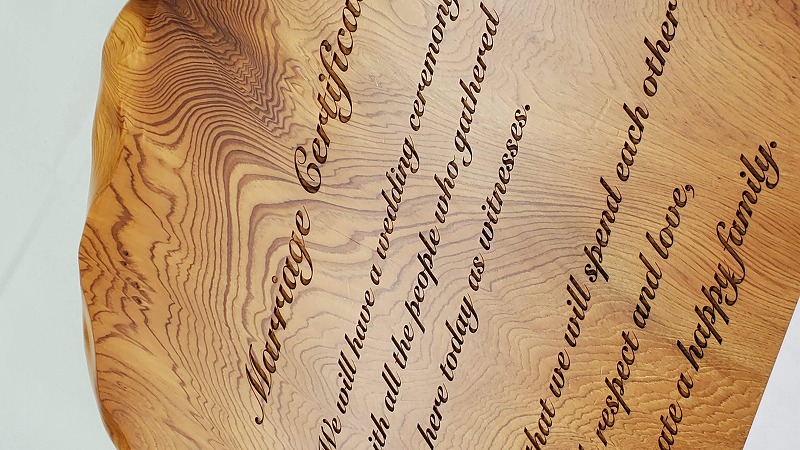 Marriage Certifica
We will have a wedding ceremony
ith all the people who gathered
here today as witnesses.
hat we will spend each other
respect and love,
ate a happy family.